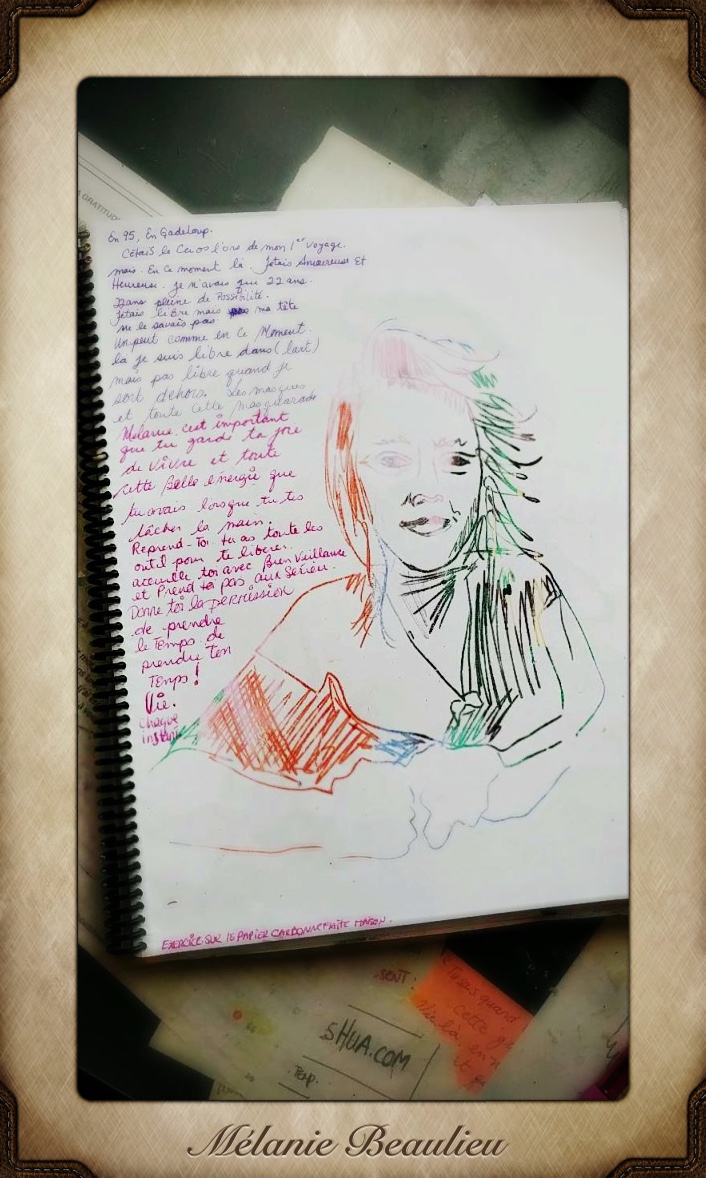 A GRATITUD
En 95, En Gadeloup.
Cétais le Caos lors de mon 1er Voyage.
mais. En ce moment là. Jétais Amoureuse Et
Heureuse. Je n'avais que 22 ans.
22ans pleine de Possibilité.
Jétais libre mais ma tête
ne le savais pas
Un peut comme en ce Moment.
là je suis libre dans (lart)
mais pas libre quand je
sort dehors. Les masques
et toute cette masquarade
Mélanie. c'est important
que tu garde ta joie
de ViVre et toute
cette Belle énergie que
tu avais lorsque tu t'es
lâcher la main.
Reprend-Toi. tu as toute les
outil pour te libérer.
accueille toi avec BienVeillance
et Prend toi pas aux Sérieu.
Donne toi la permission
de prendre
le Temps. de
prendre ton
Temps!
Vie.
Chaque
instant
EXERCICE SUR le PAPIER CARBONNE FAITE MAISON.
SENT.
cette
sHUA.COM
et
Temp.
Mélanie Beaulieu